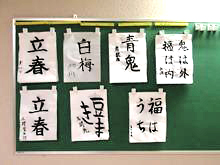 鬼は外
福は内
青鬼
白梅
立春
福は
うち
豆ま
き
立春